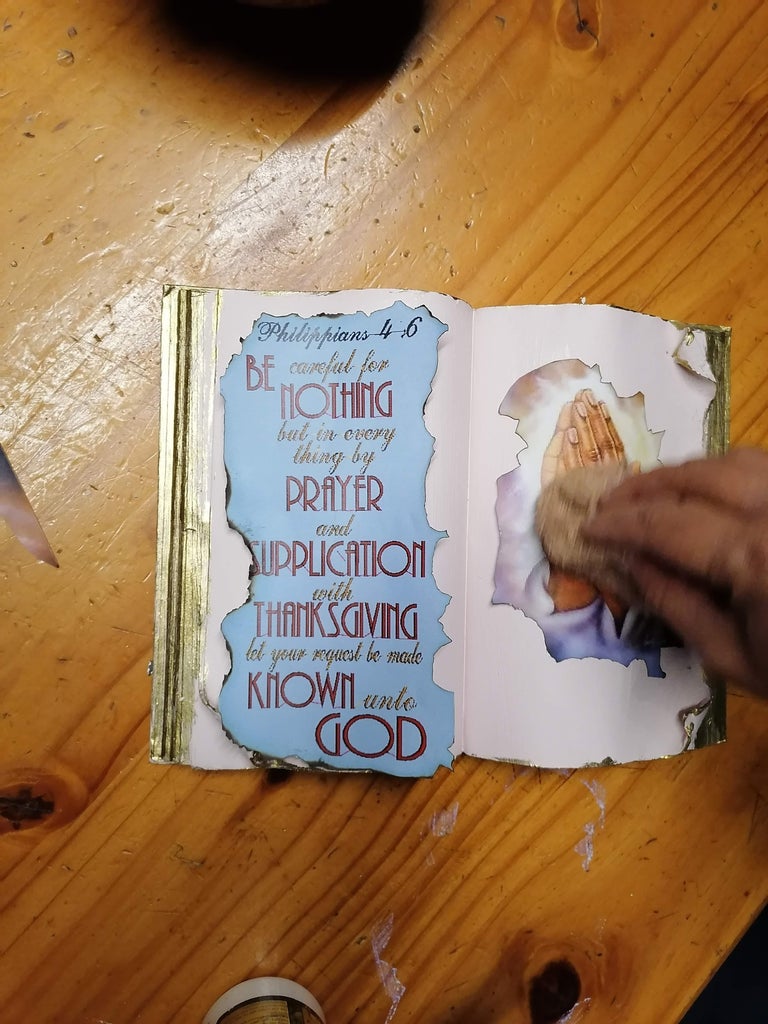 Philippians 4:6
BE careful for
NOTHING
but in every
thing by
PRAYER
and
SUPPLICATION
with
THANKSGIVING
let your request be made
KNOWN unto
GOD